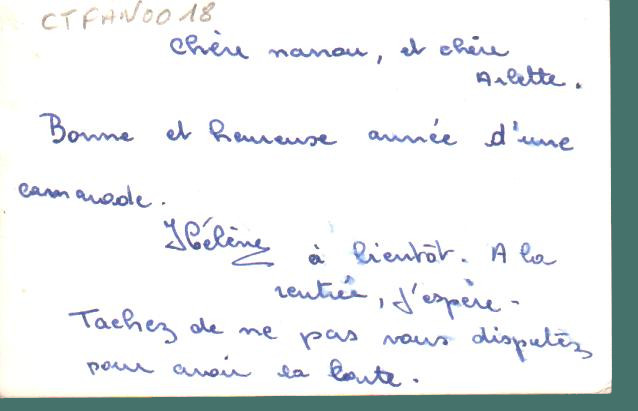 CTFAN0018
Chère nanou, et chère
Arlette.
Bonne et heureuse année d'une
camarade.
Hélène à bientôt. A la
rentrée, j'espère -
Tachez de ne pas vous disputéz
pour avoir la carte.